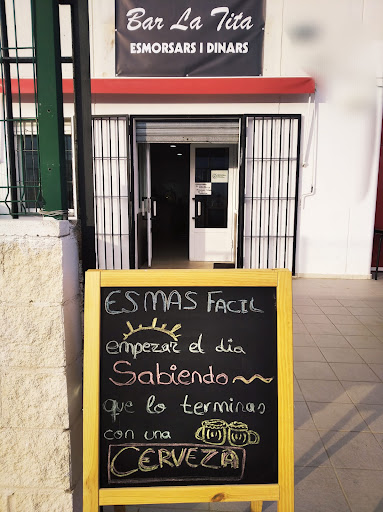 Bar La Tita
ESMORSARS I DINARS
ES MAS FACIL
empezar el dia
Sabiendo
que lo terminas
con una
CERVEZA